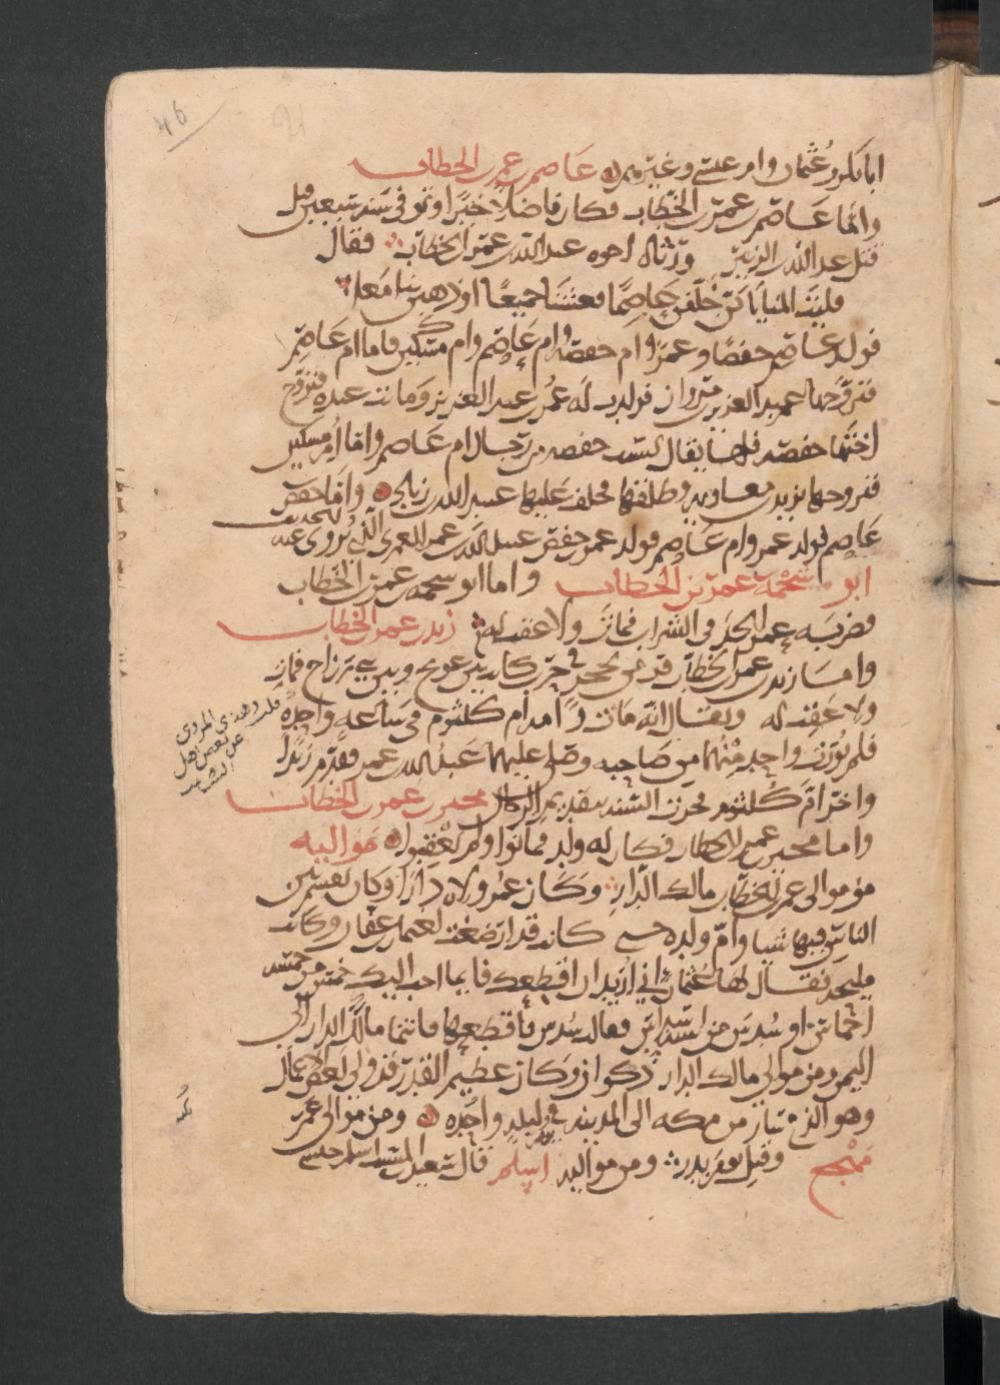 46
ابا بكر وعثمان وام عيسى وغيرهم عاصم بن عمر بن الخطاب
واما عاصم بن عمر بن الخطاب فكان فاضلا خيرا وتوفى سنة سبعين قبل
قتل عبد الله بن الزبير ورثاه اخوه عبد الله بن عمر بن الخطاب فقال
فليت المنايا كن خلفن عاصما فعشنا جميعا او ذهبن بنا معا
فولد عاصم حفصا وعمر وام حفصه وام عاصم وام مسكين فاما ام عاصم
فتزوجها عبد العزيز بن مروان فولدت له عمر بن عبد العزيز وماتت عنده فتزوج
اختها حفصه فلها يقال ليست حفصه من رجال ام عاصم واما ام مسكين
فتزوجها يزيد بن معاويه وطلقها فخلف عليها عبيد الله بن زياد واما حفص بن
عاصم فولد عمر وام عاصم فولد عمر بن حفص عبيد الله بن عمر العمرى الذى يروى عنه
الحديث
ابو شحمة بن عمر بن الخطاب واما ابو شحمه بن عمر بن الخطاب
فضربه عمر الحد فى الشراب فمات ولا عقب له زيد بن عمر بن الخطاب
واما زيد بن عمر بن الخطاب فرمى بحجر فى حرب كانت بين عويج وبين بنى رزاح فمات
ولا عقب له ويقال انه مات هو وامه ام كلثوم فى ساعة واحدة
فلم يورث واحد منهما من صاحبه وصلى عليهما عبد الله بن عمر فقدم زيدا
واخر ام كلثوم فجرت السنة بتقديم الرجال مجبر بن عمر بن الخطاب
واما مجبر بن عمر بن الخطاب فكان له ولد فماتوا ولم يعقبوا مواليه
من موالى عمر بن الخطاب مالك الدار وكان عمر ولاه دارا وكان يقسم بين
الناس فيها شيا وام ولده كانت قد ارضعت لعثمان بن عفان وكانت
مليحه فقال لها عثمان انى اريد ان اقطعك فايما احب اليك خمس من خمسة
اخماس او سدس من اسداس فقالت سدس فاقطعها فانتما مالك الدار الى
اليمن ومن موالى مالك الدار ذكوان وكان عظيم القدر قد ولى بعض الاعمال
وهو الذى سار من مكه الى المدينة فى ليلة واحده ومن موالى عمر
مهجع وقتل يوم بدر ومن مواليه اسلم قال سعيد بن المسيب اسلم حبشى
قلت وهذى المروى
عن بعض اهل